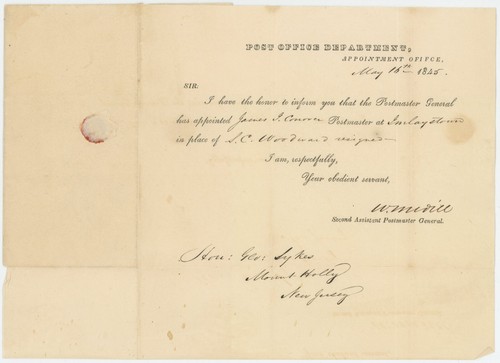 POST OFFICE DEPARTMENT,
APPOINTMENT OFIFCE,
May 16th 1845.
SIR:
I have the honor to inform you that the Postmaster General
has appointed James I. Conover Postmaster at Imlaystown
in place of S. C. Woodward resigned
I am, respectfully,
Your obedient servant,
Second Assistant Postmaster General.
Hon: Geo: Sykes
Mount Holly
New Jersey